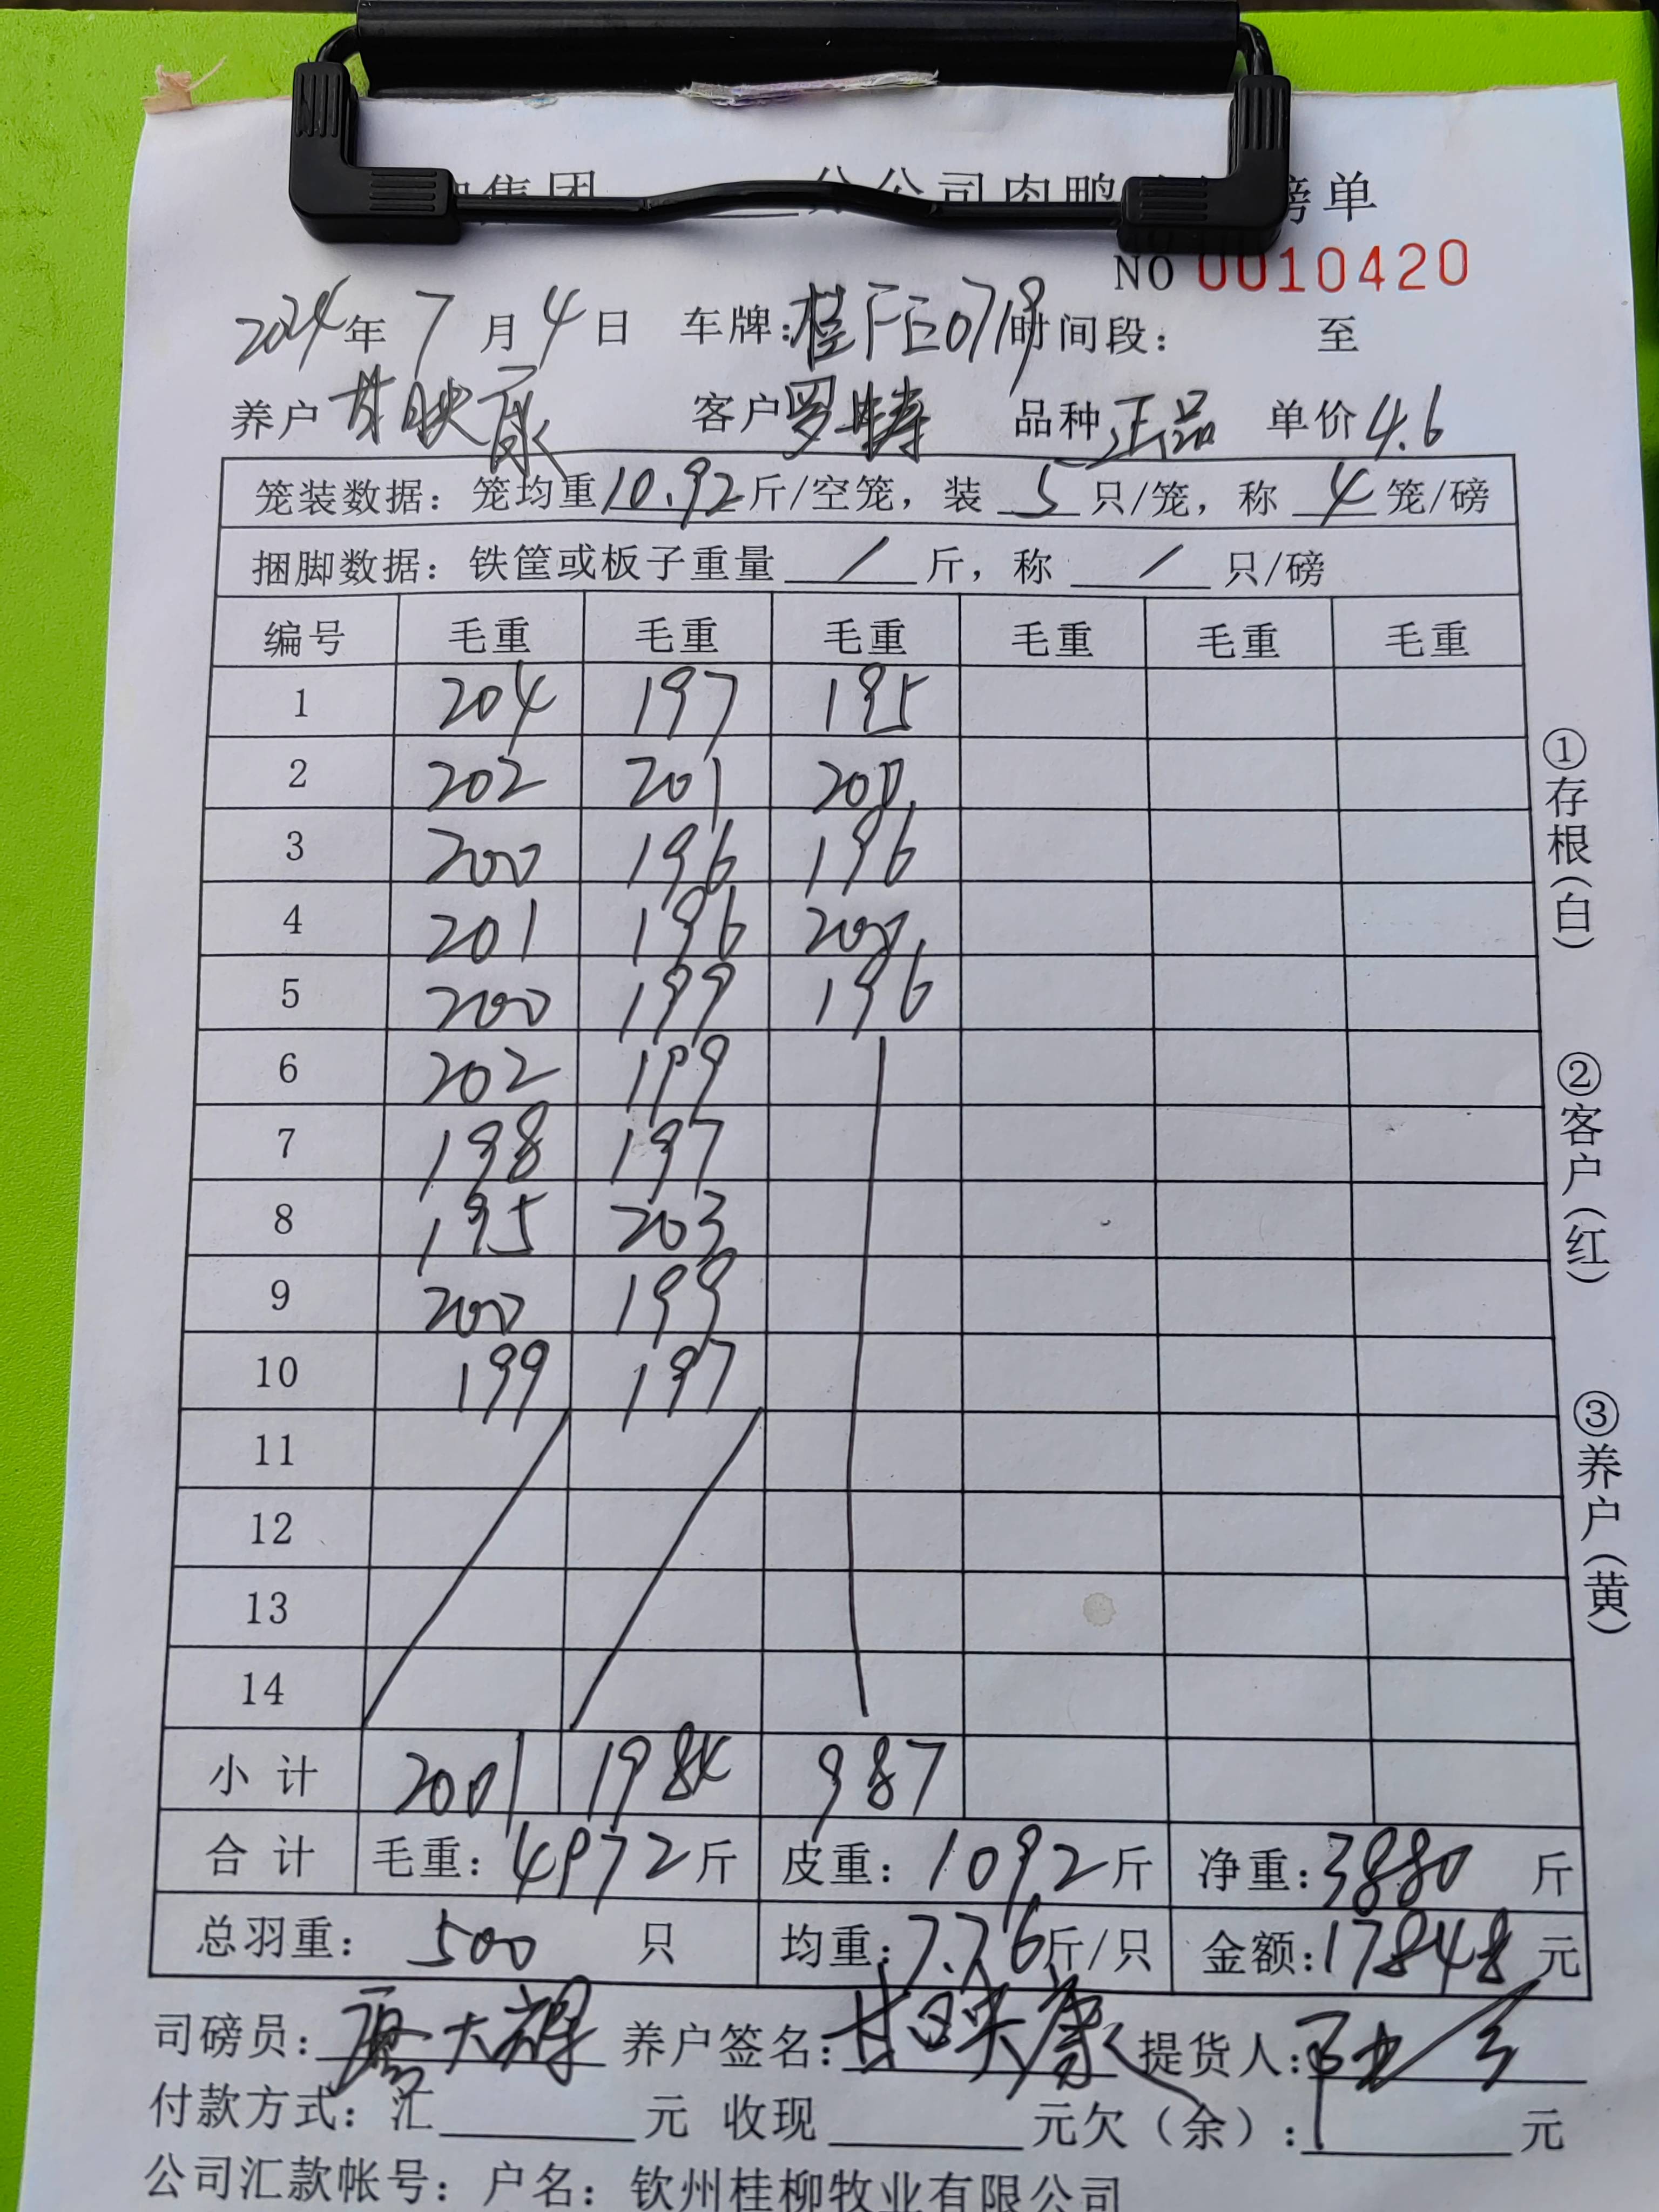 集团 分公司肉鸭 磅单
NO 0010420
2024年 7 月 4 日 车牌: 时间段: 至
养户 甘映康 客户 罗特 品种 正品 单价 4.6
笼装数据: 笼均重10.92斤/空笼, 装 5 只/笼, 称 4 笼/磅
捆脚数据: 铁筐或板子重量 / 斤, 称 / 只/磅
编号 毛重 毛重 毛重 毛重 毛重 毛重
1 204 197 195
2 202 201 200
3 200 196 196
4 201 196 200
5 200 199 196
6 202 199
7 198 197
8 195 203
9 200 199
10 199 197
11
12
13
14
小计 2001 1984 987
合计 毛重: 4972斤 皮重: 1092斤 净重: 3880 斤
总羽重: 500 只 均重: 7.76斤/只 金额: 17848 元
司磅员: 大 养户签名: 甘映康 提货人:
付款方式: 汇 元 收现 元欠(余): 元
公司汇款帐号: 户名: 钦州桂柳牧业有限公司
①存根(白)
②客户(红)
③养户(黄)